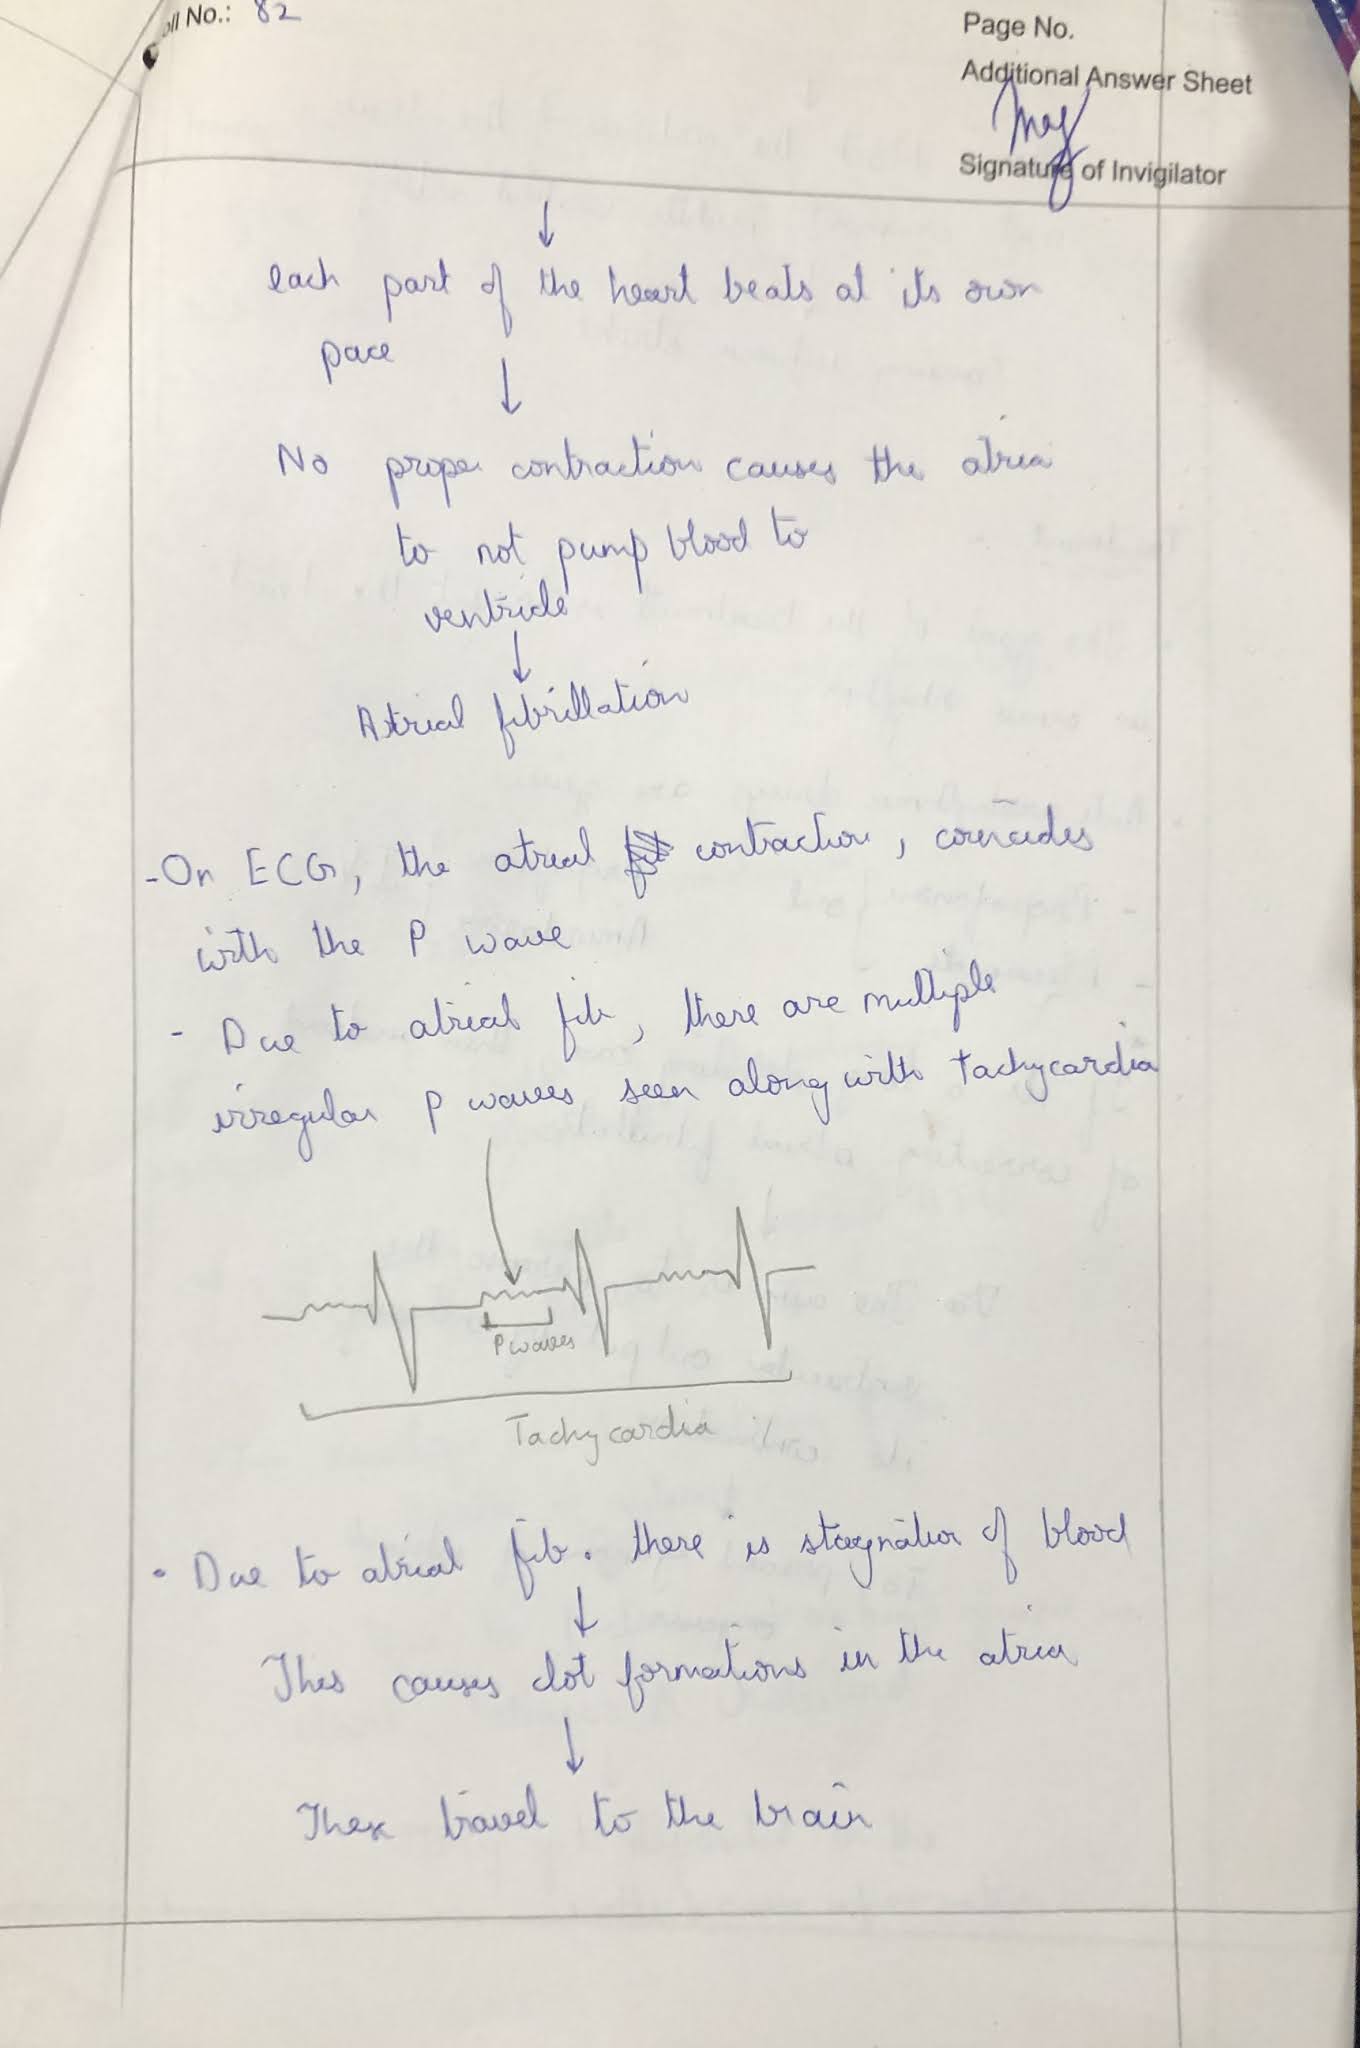 oll No.: 82
Page No.
Additional Answer Sheet
Signature of Invigilator
↓
each part of the heart beats at its own
pace
↓
No proper contraction causes the atria
to not pump blood to
ventricle
↓
Atrial fibrillation
- On ECG, the atrial contraction, coincides
with the P wave
- Due to atrial fib, there are multiple
irregular P waves seen along with tachycardia
P waves
Tachycardia
• Due to atrial fib. there is stagnation of blood
↓
This causes clot formations in the atria
↓
travel to the brain